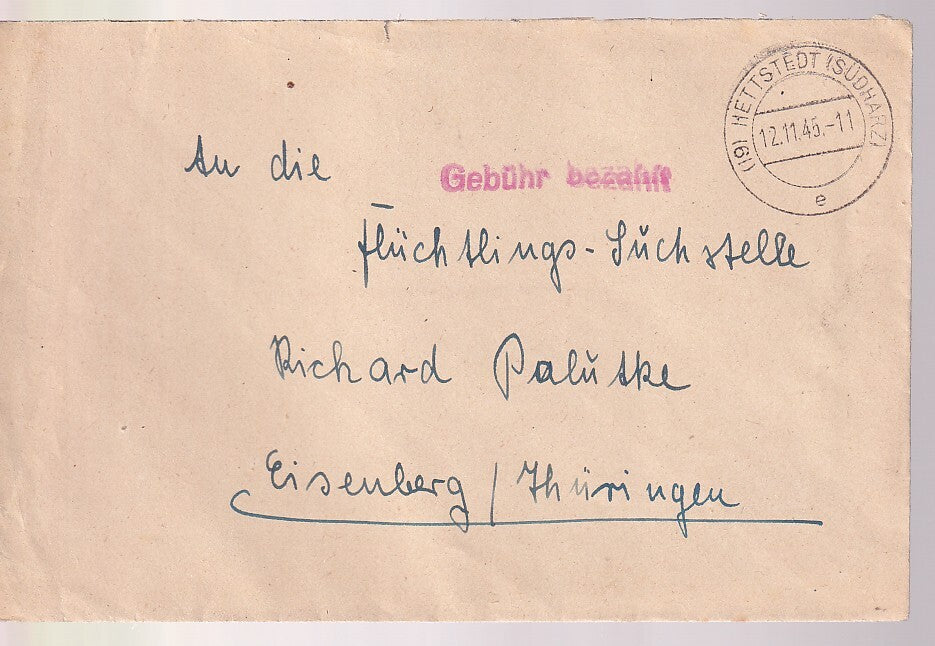 (19) HETTSTEDT (SÜDHARZ)
12.11.45.-11
e
Gebühr bezahlt
An die
Flüchtlings-Suchstelle
Richard Palutke
Eisenberg / Thüringen